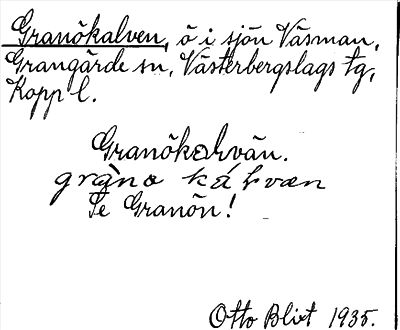 Granökalven, ö i sjön Väsman,
Grangärde sn, Västerbergslags tg,
Kopp l.
Granökalvän.
grànə kálvæn
Se Granön!
Otto Blixt 1935.